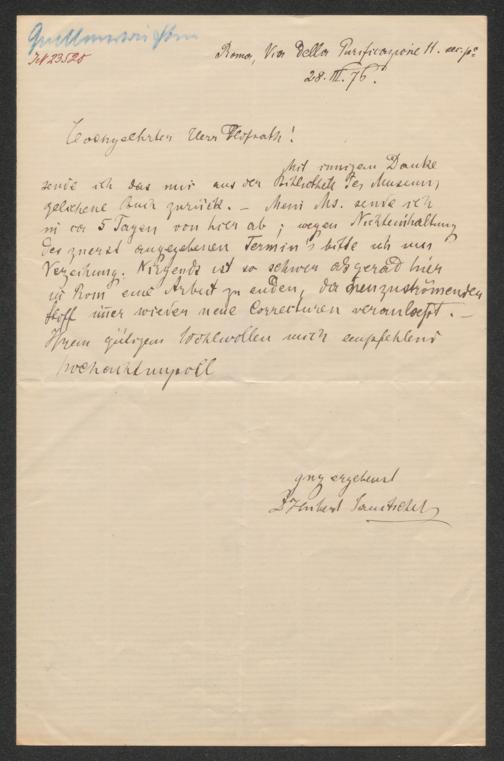 JN 23520
Roma, Via Della Purificazione 11. sec. pº
28. III. 76.
Hochgeehrter Herr Hofrath!
Mit innigem Danke
sende ich das mir aus der Bibliothek des Museums
geliehene Buch zurück. – Mein Ms. sende ich
in ca 5 Tagen von hier ab; wegen Nichteinhaltung
des zuerst angegebenen Termin's bitte ich um
Verzeihung. Nirgends ist so schwer als gerad hier
in Rom eine Arbeit zu enden, da neuzuströmender
Stoff immer wieder neue Correcturen veranlasst. –
Ihrem gütigem Wohlwollen mich empfehlend
hochachtungsvoll
ganz ergebenst
Dr Hubert Janitschek